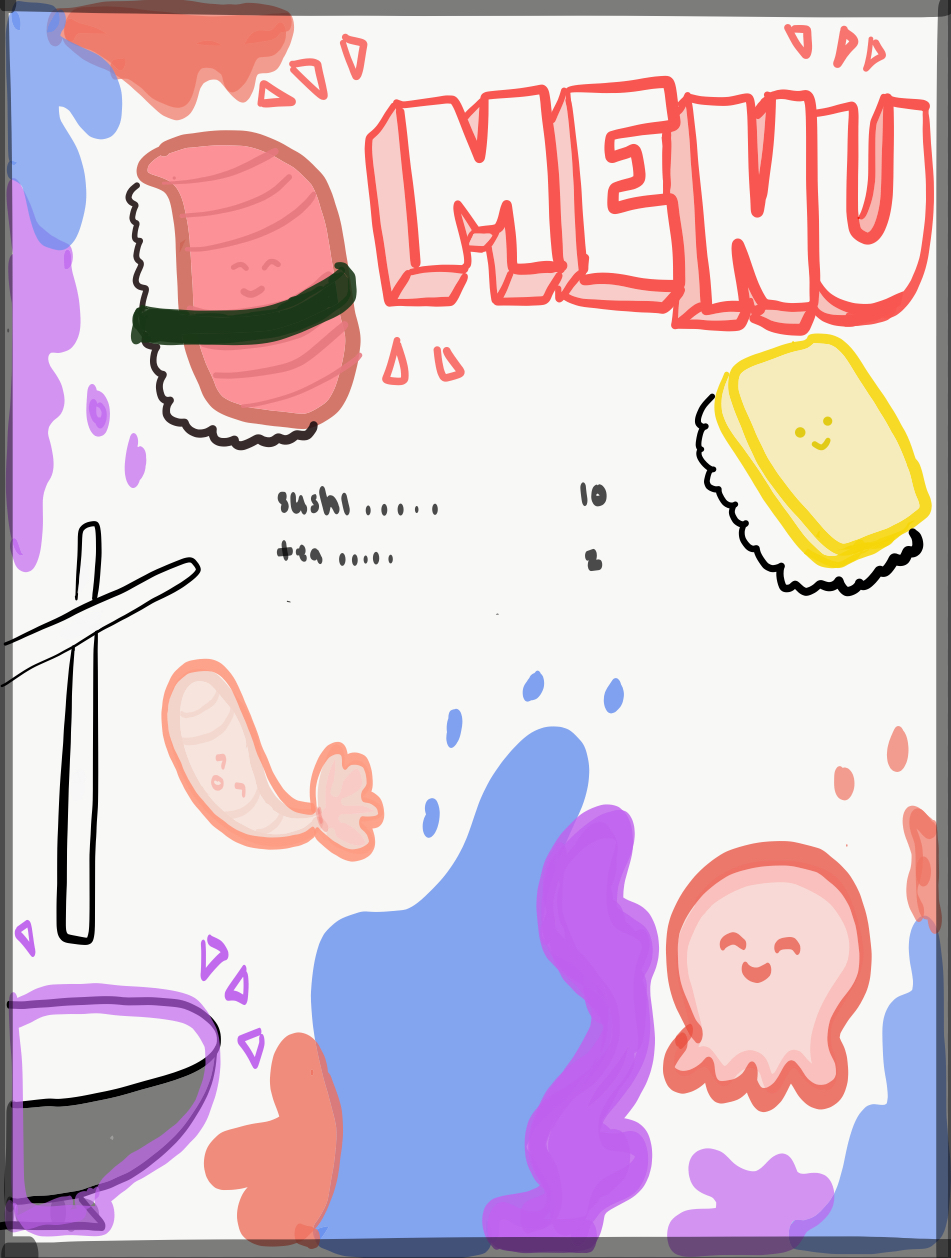 MENU
sushi ..... 10
tea .....